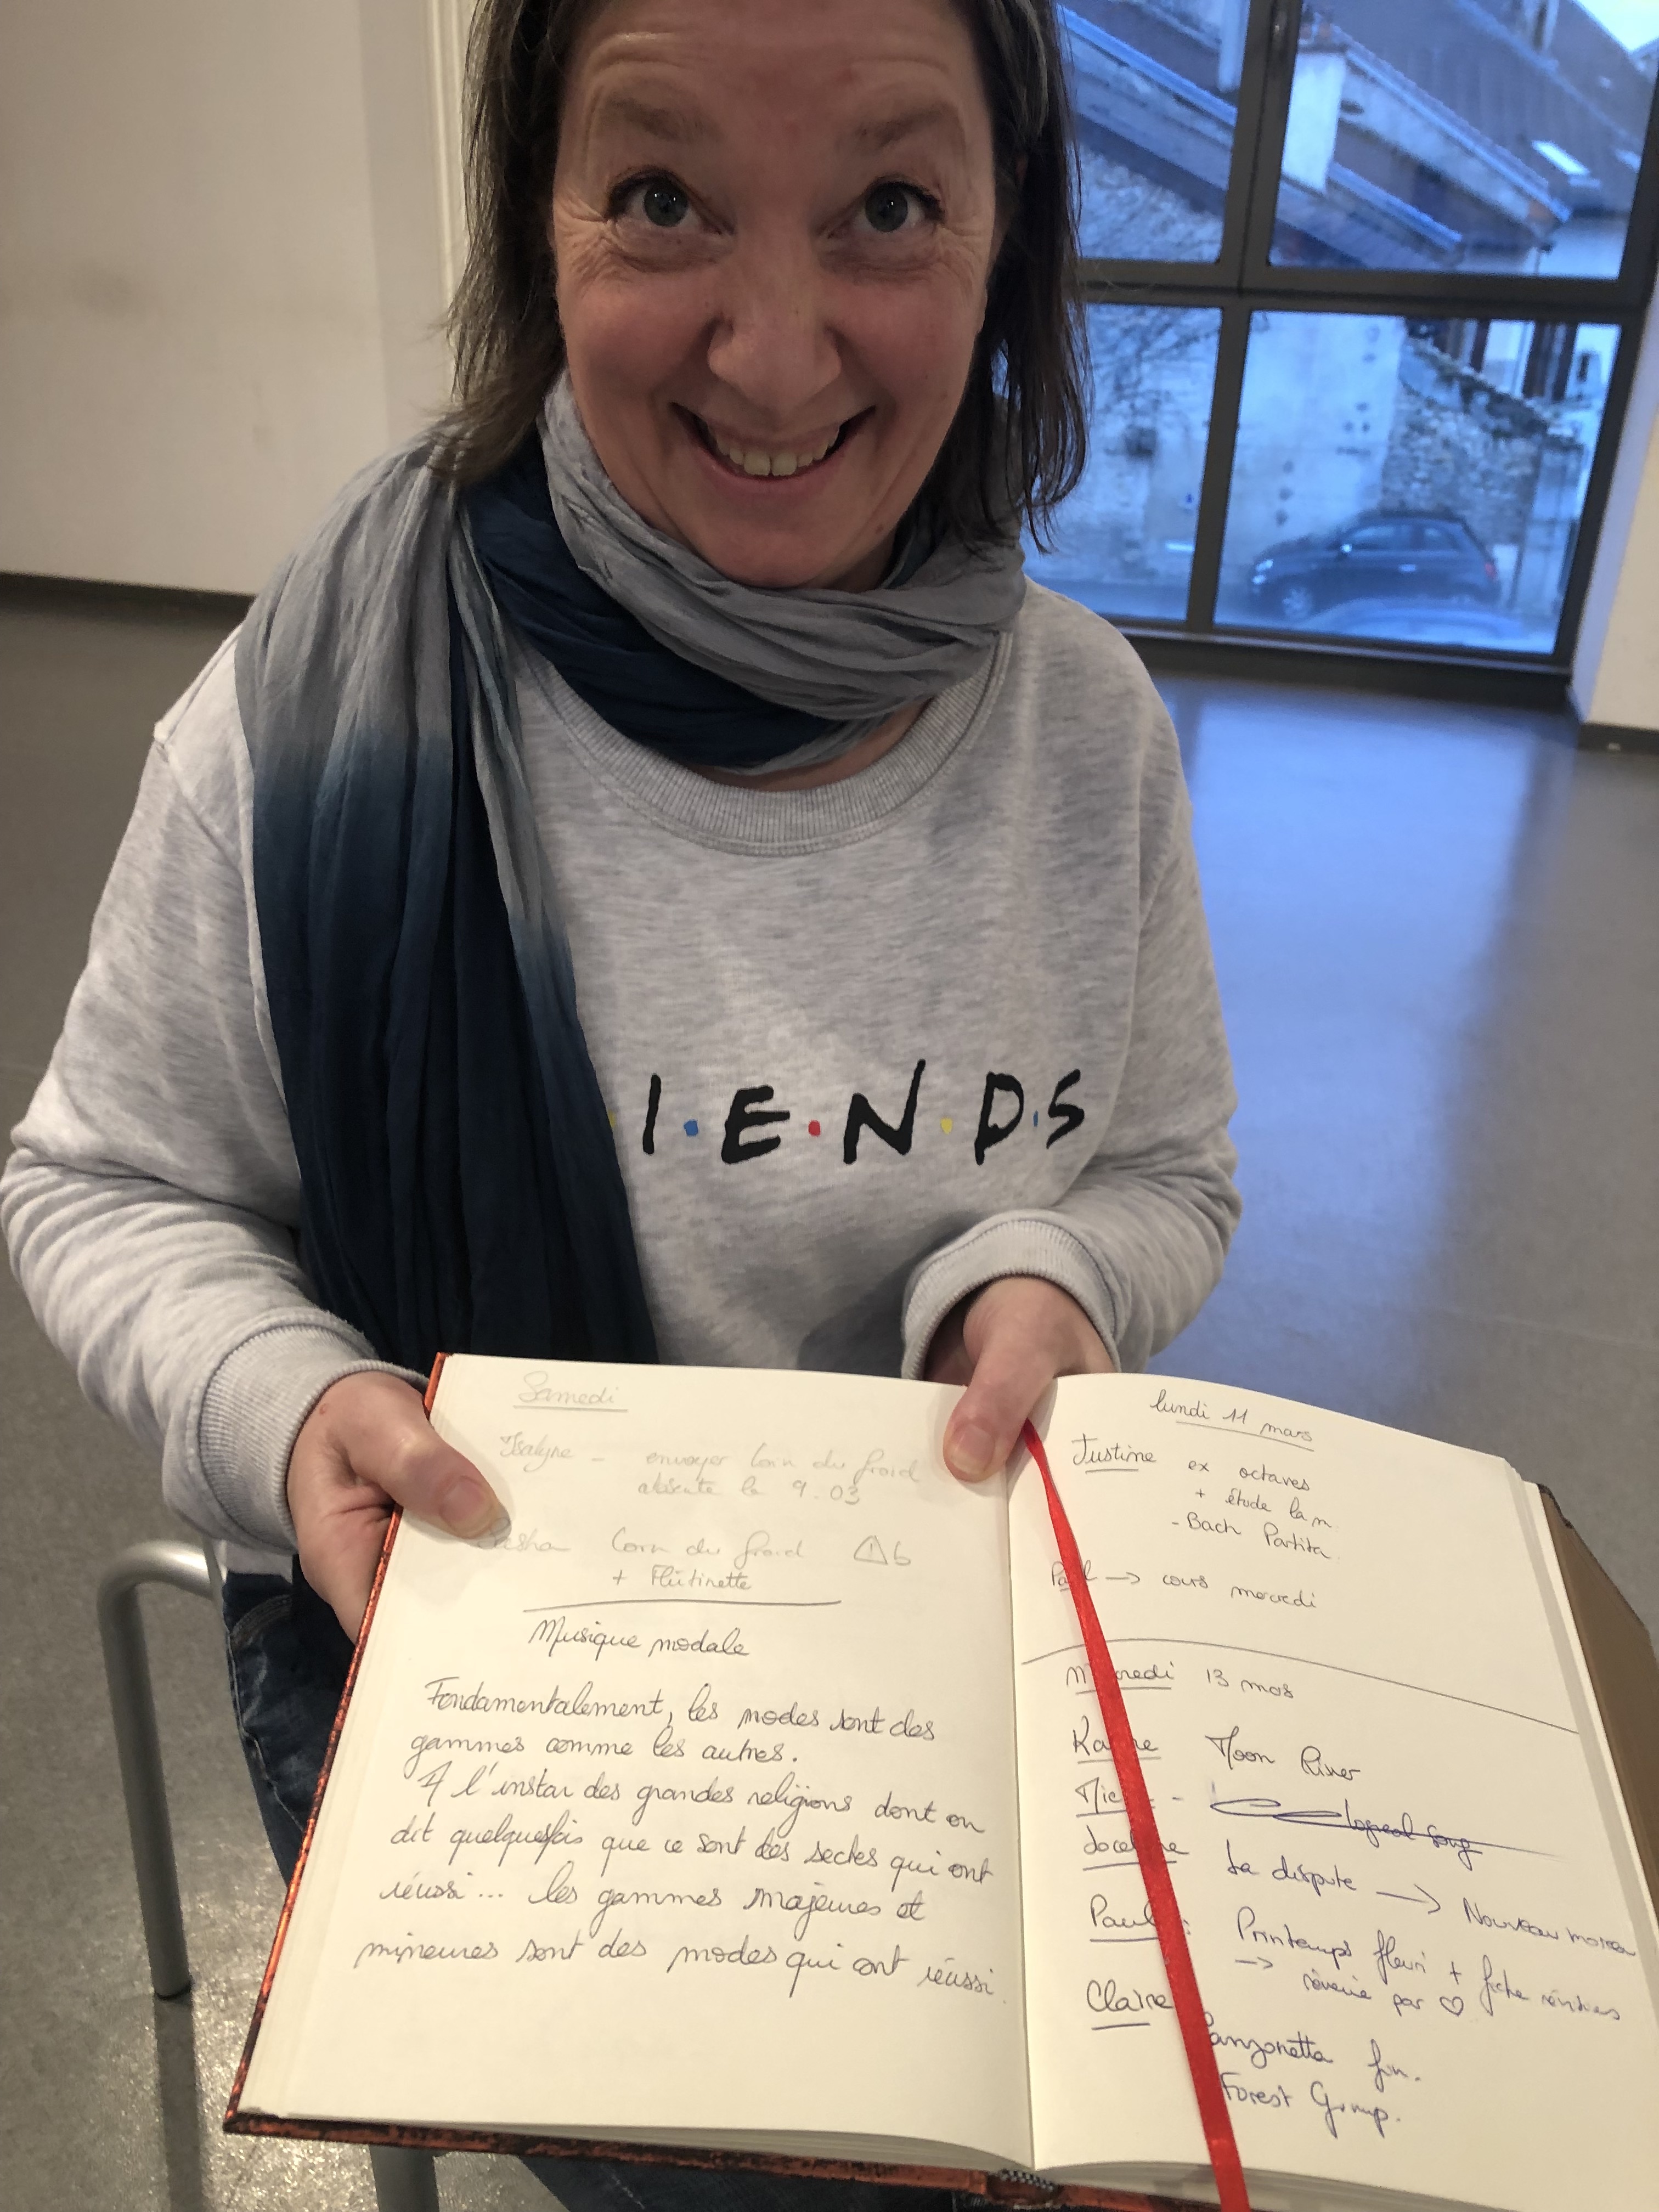 I.E.N.D.S
Samedi
envoyer loin du froid
absente le 9.03
loin du froid 6
+ Flûtinette
Musique modale
Fondamentalement, les modes sont des
gammes comme les autres.
A l'instar des grandes religions dont on
dit quelquefois que ce sont des sectes qui ont
réussi... les gammes majeures et
mineures sont des modes qui ont réussi.
lundi 11 mars
Justine ex octaves
+ étude la m
- Bach Partita
→ cours mercredi
13 mars
Moon River
logical song
La dispute → Nouveau
Paul : Printemps fleuri + fiche révisions
→ par ♡
Claire
fin.
Forest